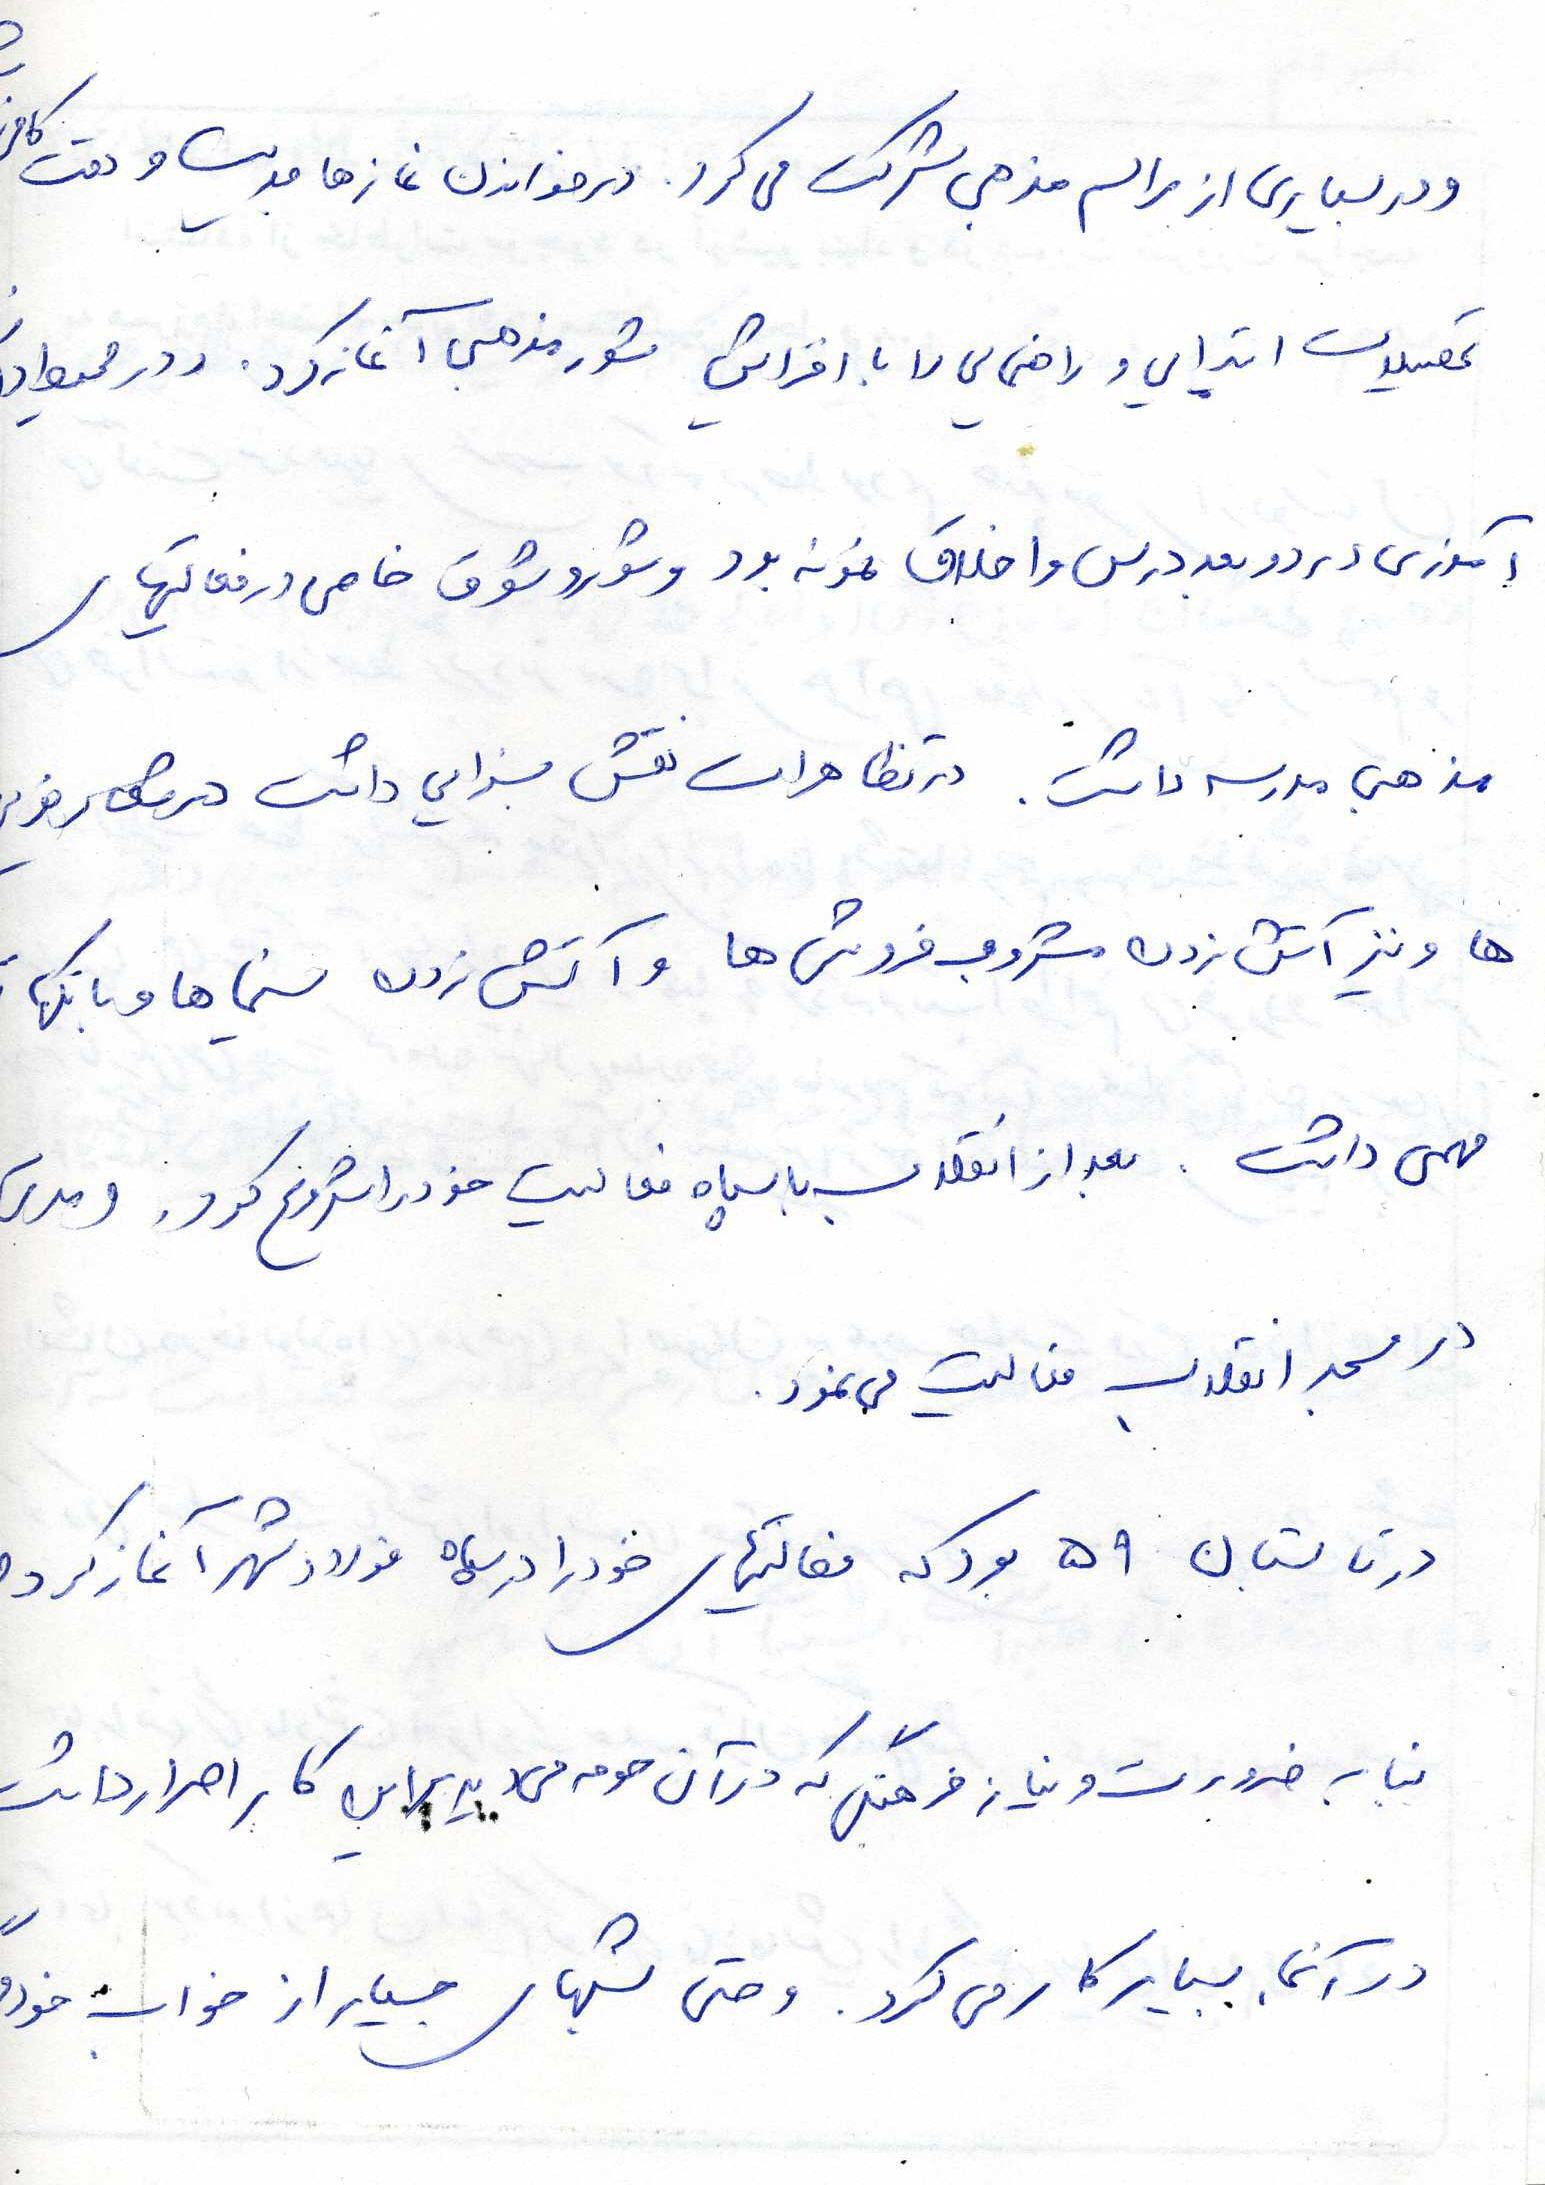 و در بسیاری از مراسم مذهبی شرکت می کرد. در خواندن نمازها جدیت و دقت
تحصیلات ابتدایی و راهنمایی را با افزایش شور مذهبی آغاز کرد. و در محیط
آموزی در دو بعد درس و اخلاق نمونه بود و شور و شوق خاصی در فعالیتهای
مذهبی مدرسه داشت. در تظاهرات نقش بسزایی داشت در
ها و نیز آتش زدن مشروب فروشی ها و آتش زدن سینماها و بانکها
مهمی داشت. بعد از انقلاب با سپاه فعالیت خود را شروع کرد. و مدتی
در مسجد انقلاب فعالیت می نمود.
در تابستان ۵۹ بود که فعالیتهای خود را در سپاه فولادشهر آغاز کرد و
بنا به ضرورت و نیاز فرهنگی که در آن حومه می دید براین کار اصرار داشت
در آنجا بسیار کار می کرد. و حتی شبهای بسیار از خواب خود